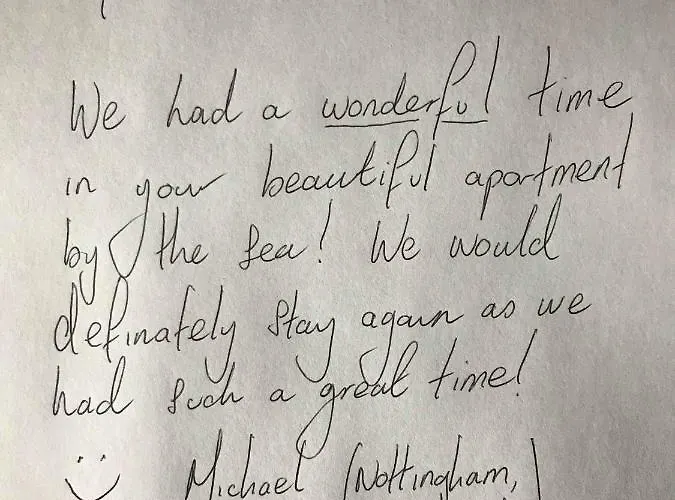 We had a wonderful time
in your beautiful apartment
by the sea! We would
definately stay again as we
had such a great time!
Michael (Nottingham,